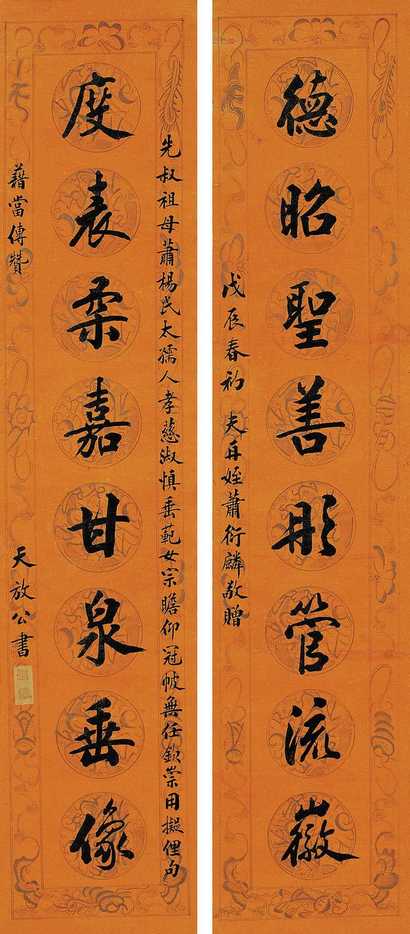 德昭聖善彤管流徽
戊辰春初 夫再姪蕭衍麟敬贈
先叔祖母蕭楊氏太孺人孝慈淑慎垂範女宗瞻仰冠帔無任欽崇用擬俚句
度表柔嘉甘泉垂像
藉當傳贊
天放公書